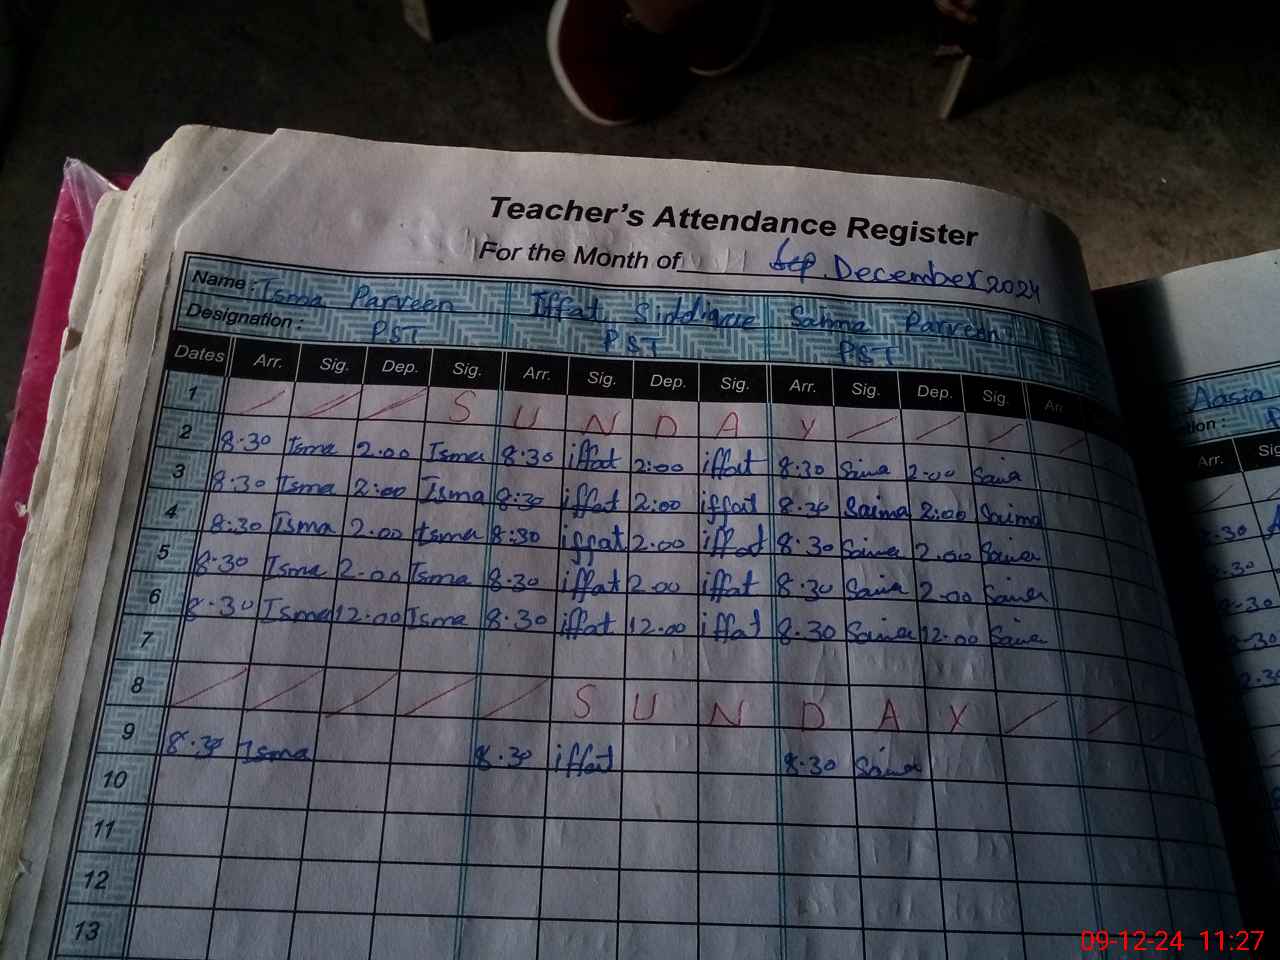 Teacher's Attendance Register
For the Month of Sep. December 2024
Name: Isma Parveen Iffat Siddique Saima Parveen
Designation: PST PST PST
Dates Arr. Sig. Dep. Sig. Arr. Sig. Dep. Sig. Arr. Sig. Dep. Sig. Arr.
1 S U N D A Y
2 8:30 Isma 2:00 Isma 8:30 iffat 2:00 iffat 8:30 Saima 2:00 Saima
3 8:30 Isma 2:00 Isma 8:30 iffat 2:00 iffat 8:30 Saima 2:00 Saima
4 8:30 Isma 2:00 Isma 8:30 iffat 2:00 iffat 8:30 Saima 2:00 Saima
5 8:30 Isma 2:00 Isma 8:30 iffat 2:00 iffat 8:30 Saima 2:00 Saima
6 8:30 Isma 12:00 Isma 8:30 iffat 12:00 iffat 8:30 Saima 12:00 Saima
7
8 S U N D A Y
9 8:30 Isma 8:30 iffat 8:30 Saima
10
11
12
13
Aasia
tion :
Arr. Sig
09-12-24 11:27